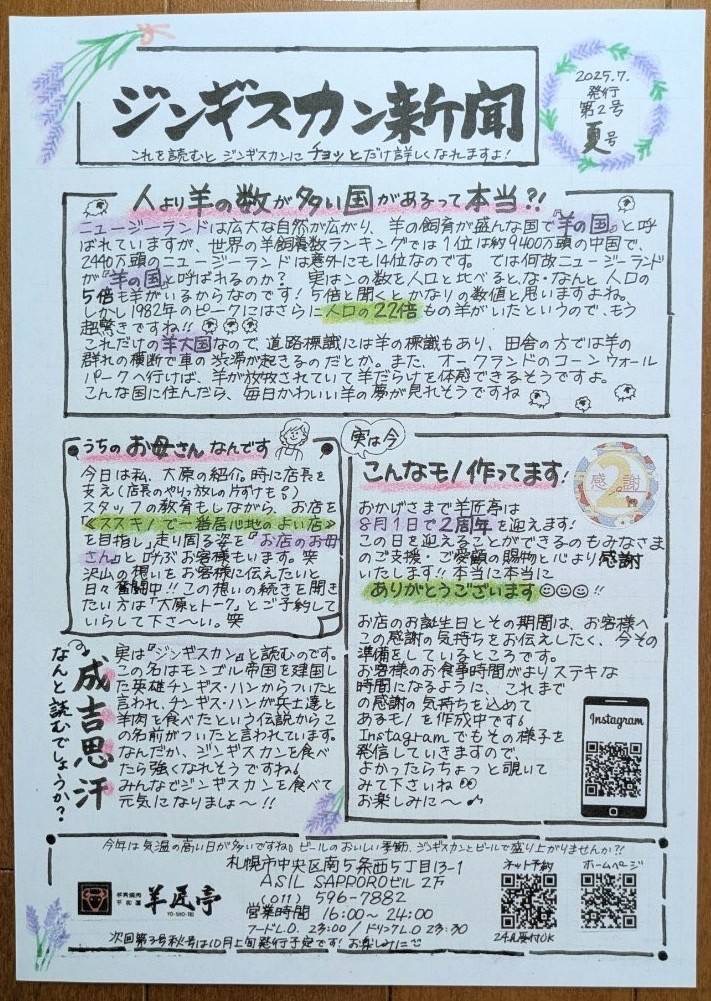 ジンギスカン新聞
これを読むとジンギスカンにチョッとだけ詳しくなれますよ!
2025.7.
発行
第2号
夏号
人より羊の数が多い国があるって本当?!
ニュージーランドは広大な自然が広がり、羊の飼育が盛んな国で『羊の国』と呼
ばれていますが、世界の羊飼養数ランキングでは1位は約9400万頭の中国で、
2440万頭のニュージーランドは意外にも14位なのです。では何故ニュージーランド
が『羊の国』と呼ばれるのか? 実はこの数を人口と比べると、な・なんと人口の
5倍も羊がいるからなのです!5倍と聞くとかなりの数値と思いますよね。
しかし1982年のピークにはさらに人口の22倍もの羊がいたというので、もう
超驚きですね!!
これだけの羊大国なので、道路標識には羊の標識もあり、田舎の方では羊の
群れの横断で車の渋滞が起きるのだとか。また、オークランドのコーンウォール
パークへ行けば、羊が放牧されていて羊だらけを体感できるそうですよ。
こんな国に住んだら、毎日かわいい羊の夢が見れそうですね
うちのお母さんなんです
今日は私、大原の紹介。時に店長を
支え(店長のやりっ放しの片ずけもる)
スタッフの教育もしながら、お店を
《ススキノで一番居心地のよい店》
を目指し走り周る姿を『お店のお母
さん』と呼ぶお客様もいます。笑
沢山の想いをお客様に伝えたいと
日々奮闘中!!この想いの続きを聞き
たい方は「大原とトーク」とご予約して
いらして下さ〜い。笑
成吉思汗
なんと読むでしょうか?
実は『ジンギスカン』と読むのです。
この名はモンゴル帝国を建国し
た英雄チンギス・ハンからついたと
言われ、チンギス・ハンが兵士達と
羊肉を食べたという伝説からこ
の名前がついたと言われています。
なんだか、ジンギスカンを食べ
たら強くなれそうですね。
みんなでジンギスカンを食べて
元気になりましょ〜!!
実は今
こんなモノ作ってます!
感2謝
おかげさまで羊匠亭は
8月1日で2周年を迎えます!
この日を迎えることができるのもみなさま
のご支援・ご愛顧の賜物と心より感謝
いたします!!本当に本当に
ありがとうございます!!
お店のお誕生日とその期間は、お客様へ
この感謝の気持ちをお伝えしたく、今その
準備をしているところです。
お客様のお食事時間がよりステキな
時間になるように、これまで
の感謝の気持ちを込めて
あるモノを作成中です。
Instagramでもその様子を
発信していきますので、
よかったらちょっと覗いて
みて下さいね
お楽しみに〜♪
Instagram
今年は気温の高い日が多いですね。ビールのおいしい季節、ジンギスカンとビールで盛り上がりませんか?!
札幌市中央区南5条西5丁目13-1
ASIL SAPPOROビル 2F
(011) 596-7882
営業時間 16:00〜24:00
フードL.O. 23:00/ドリンクL.O 23:30
羊匠亭
YO-SHO-TEI
ネット予約
24h受付OK
ホームページ
次回第3号秋号は10月上旬発行予定です!お楽しみに